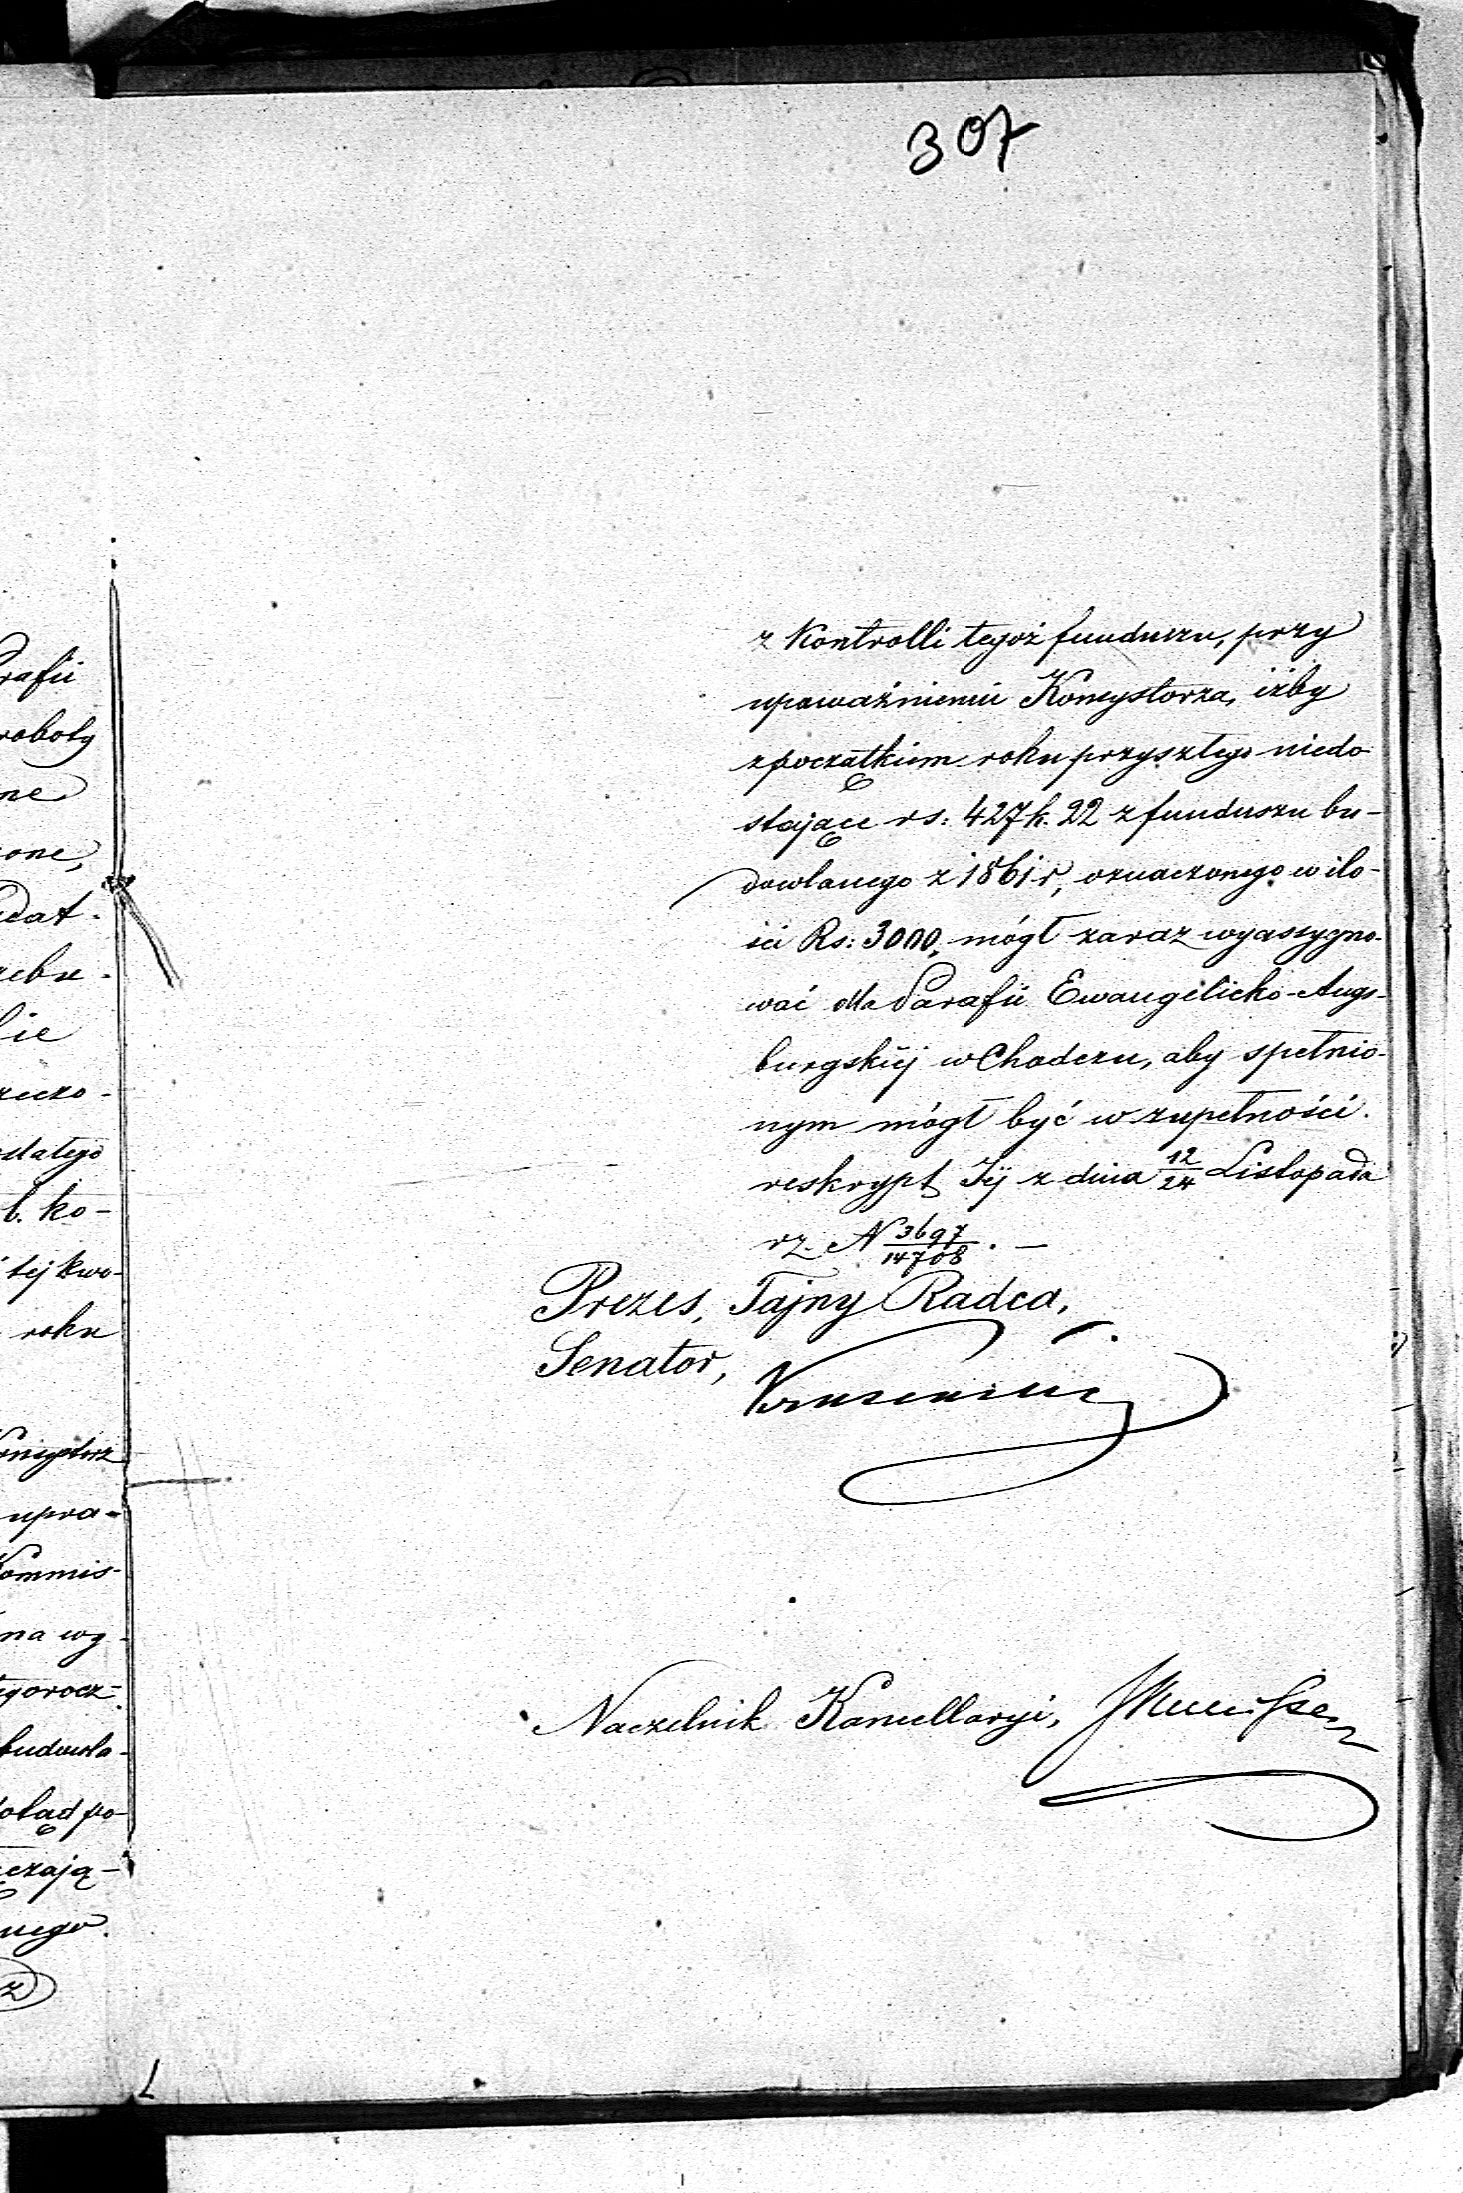 307
z Kontrolli tegoż funduszu, przy
upoważnieniu Konsystorza, iżby
z początkiem roku przyszłego niedo
stające rs: 427 k. 22 z funduszu bu-
dowlanego z 1861 r, oznaczonego w ilo-
ści Rs: 3000, mógł zaraz wyassygno-
wać dla Parafii Ewangelicko-Augs-
burgskiéj w Chodczu, aby spełnio-
nym mógł być w zupełności
reskrypt Jéj z dnia 12/24 Listopada
rz. N 3697/14708. —
Prezes, Tajny Radca,
Senator,
Naczelnik Kancellaryi,
rafii
roboty
ne
one,
dat-
zebu-
lie
zeczo-
stałego
b. ko-
tej kwo-
roku
onsystorz
upra-
Kommis-
na wy-
egorocz-
budowla-
dotąd po-
czają-
nego.